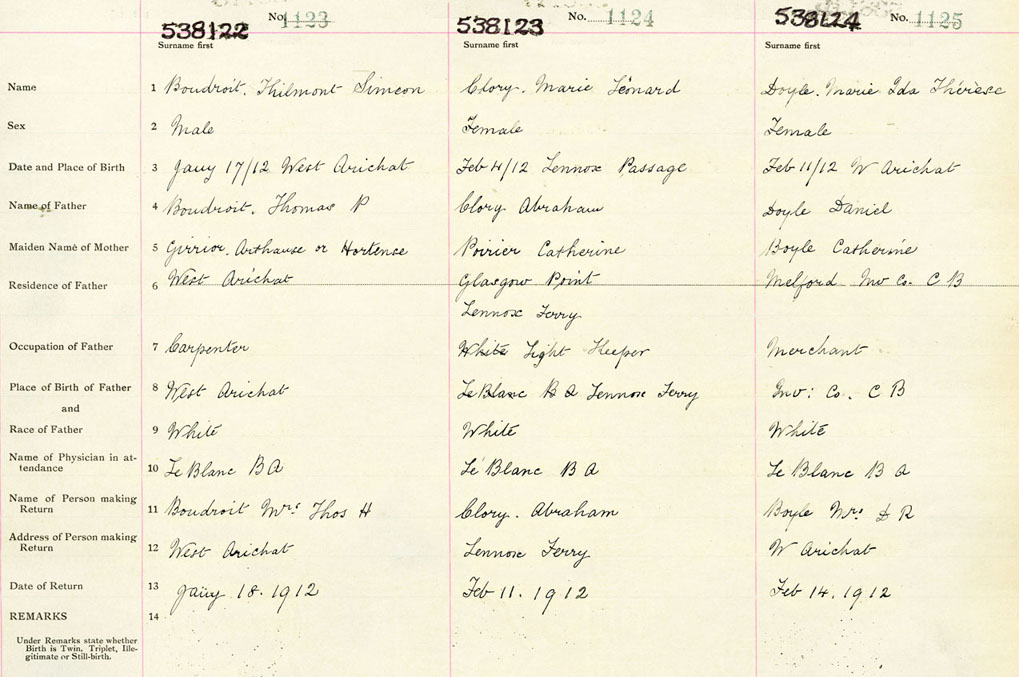 No. 1123 No. 1124 No. 1125
538122 538123 538124
Surname first Surname first Surname first
Name 1 Boudroit. Thilmont Simeon Clory. Marie Léonard Doyle. Marie Ida Thérèse
Sex 2 Male Female Female
Date and Place of Birth 3 Jany 17/12 West Arichat Feb 4/12 Lennox Passage Feb 11/12 W Arichat
Name of Father 4 Boudroit. Thomas P Clory Abraham Doyle Daniel
Maiden Name of Mother 5 Girrior. Arthause or Hortense Poirier Catherine Boyle Catherine
Residence of Father 6 West Arichat Glasgow Point Melford Inv Co. C B
Lennox Ferry
Occupation of Father 7 Carpenter White Light Keeper Merchant
Place of Birth of Father 8 West Arichat LeBlanc B A Lennox Ferry Inv: Co. C B
and
Race of Father 9 White White White
Name of Physician in at-
tendance 10 Le Blanc B A Le Blanc B A Le Blanc B A
Name of Person making
Return 11 Boudroit Mrs Thos H Clory. Abraham Boyle Mrs D R
Address of Person making
Return 12 West Arichat Lennox Ferry W Arichat
Date of Return 13 Jany 18. 1912 Feb 11. 1912 Feb 14. 1912
REMARKS 14
Under Remarks state whether
Birth is Twin, Triplet, Ille-
gitimate or Still-birth.